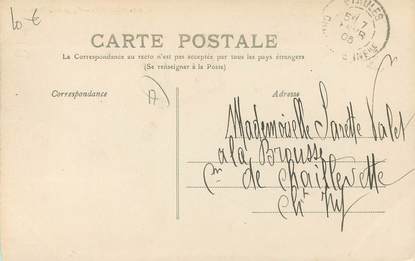 10 €
ÉTAULES
08
CARTE POSTALE
La Correspondance au recto n'est pas acceptée par tous les pays étrangers
(Se renseigner à la Poste)
Correspondance
Adresse
A
Mademoiselle Valet
a la Brousse
Cne de Chaillevette
Chte Infre